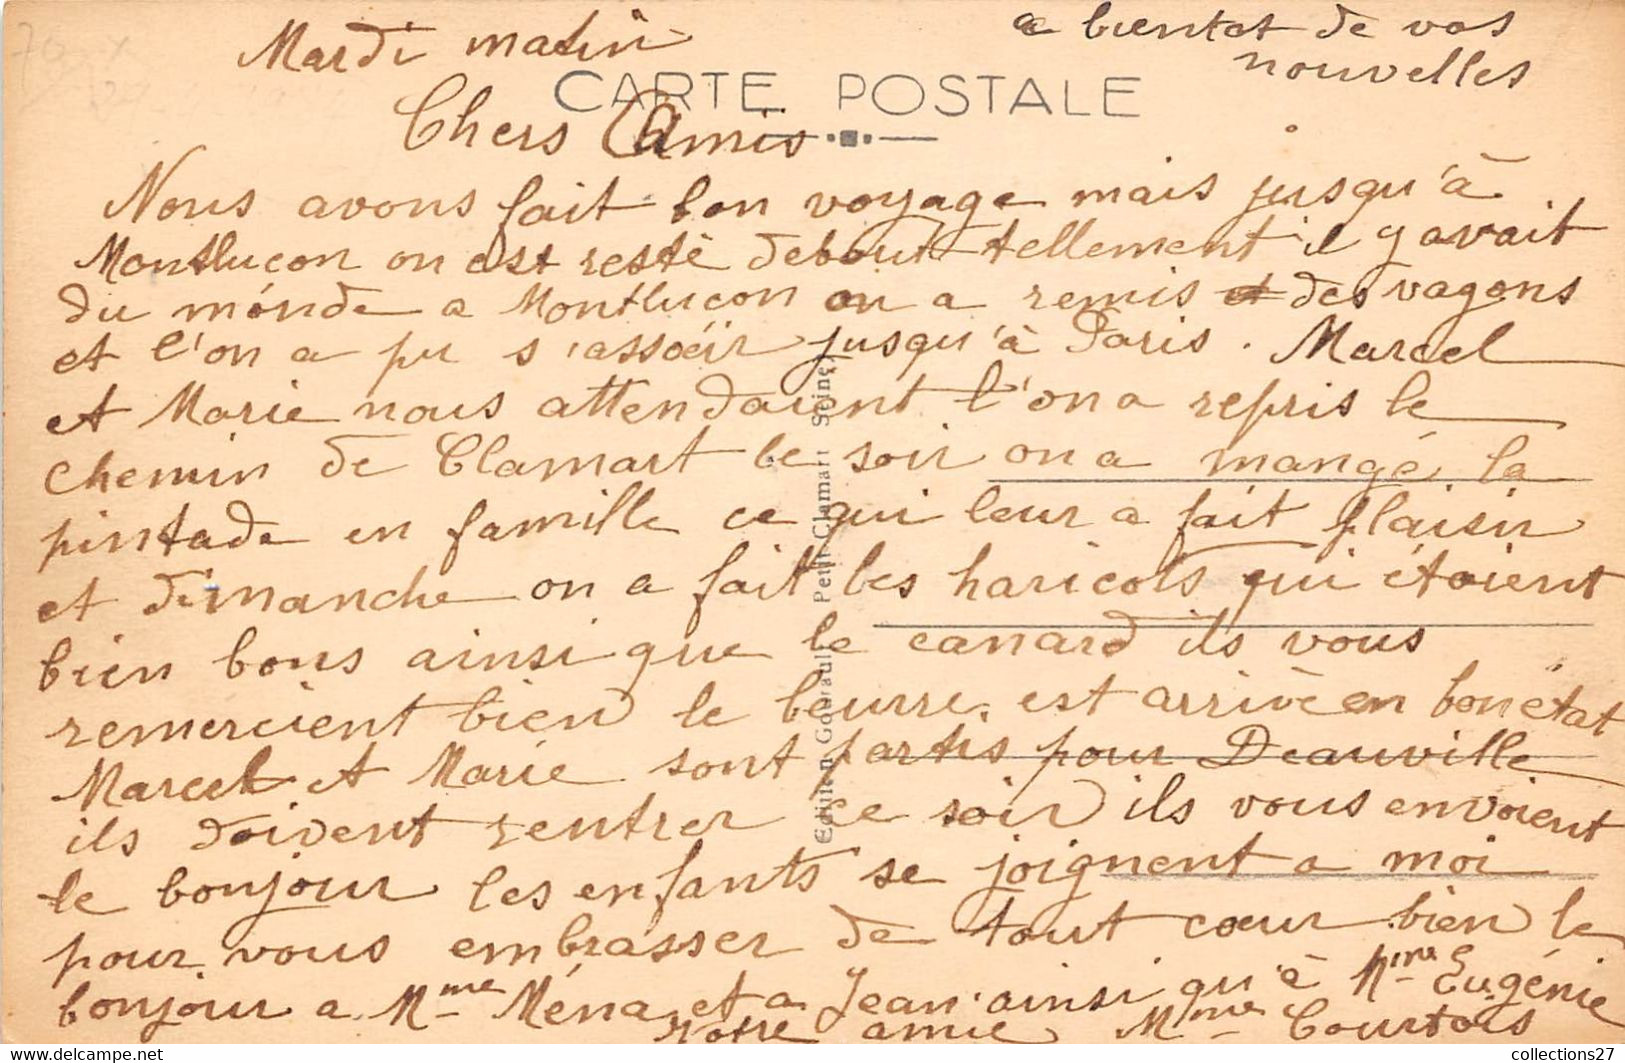 a bientot de vos
nouvelles
Mardi matin
CARTE POSTALE
Chers Amis
Nous avons fait bon voyage mais jusqu'à
Montlucon on est resté debout tellement il y avait
du monde a Montlucon on a remis des vagons
et l'on a pu s'assoeir jusqu'à Paris. Marcel
et Marie nous attendaient l'on a repris le
chemin de Clamart le soir on a mangé la
pintade en famille ce qui leur a fait plaisir
et dimanche on a fait les haricots qui étaient
bien bons ainsi que le canard ils vous
remercient bien le beurre est arrivé en bon état
Marcel et Marie sont partis pour Deauville
ils doivent rentrer ce soir ils vous envoient
le bonjour les enfants se joignent a moi
pour vous embrasser de tout cœur bien le
bonjour a Mme Ména et a Jean ainsi qu'à Mme Eugénie
votre amie Mme Courtois
Edition Gourault Petit Clamart Seine)
collections27